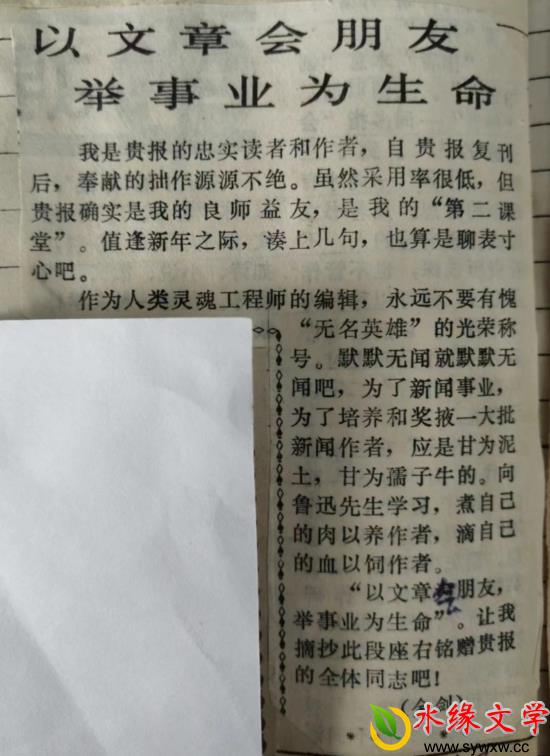 以文章会朋友
举事业为生命
我是贵报的忠实读者和作者，自贵报复刊
后，奉献的拙作源源不绝。虽然采用率很低，但
贵报确实是我的良师益友，是我的“第二课
堂”。值逢新年之际，凑上几句，也算是聊表寸
心吧。
作为人类灵魂工程师的编辑，永远不要有愧
“无名英雄”的光荣称
号。默默无闻就默默无
闻吧，为了新闻事业，
为了培养和奖掖一大批
新闻作者，应是甘为泥
土，甘为孺子牛的。向
鲁迅先生学习，煮自己
的肉以养作者，滴自己
的血以饲作者。
“以文章会朋友，
举事业为生命”。让我
摘抄此段座右铭赠贵报
的全体同志吧！
水缘文学
www.sywxw.cc